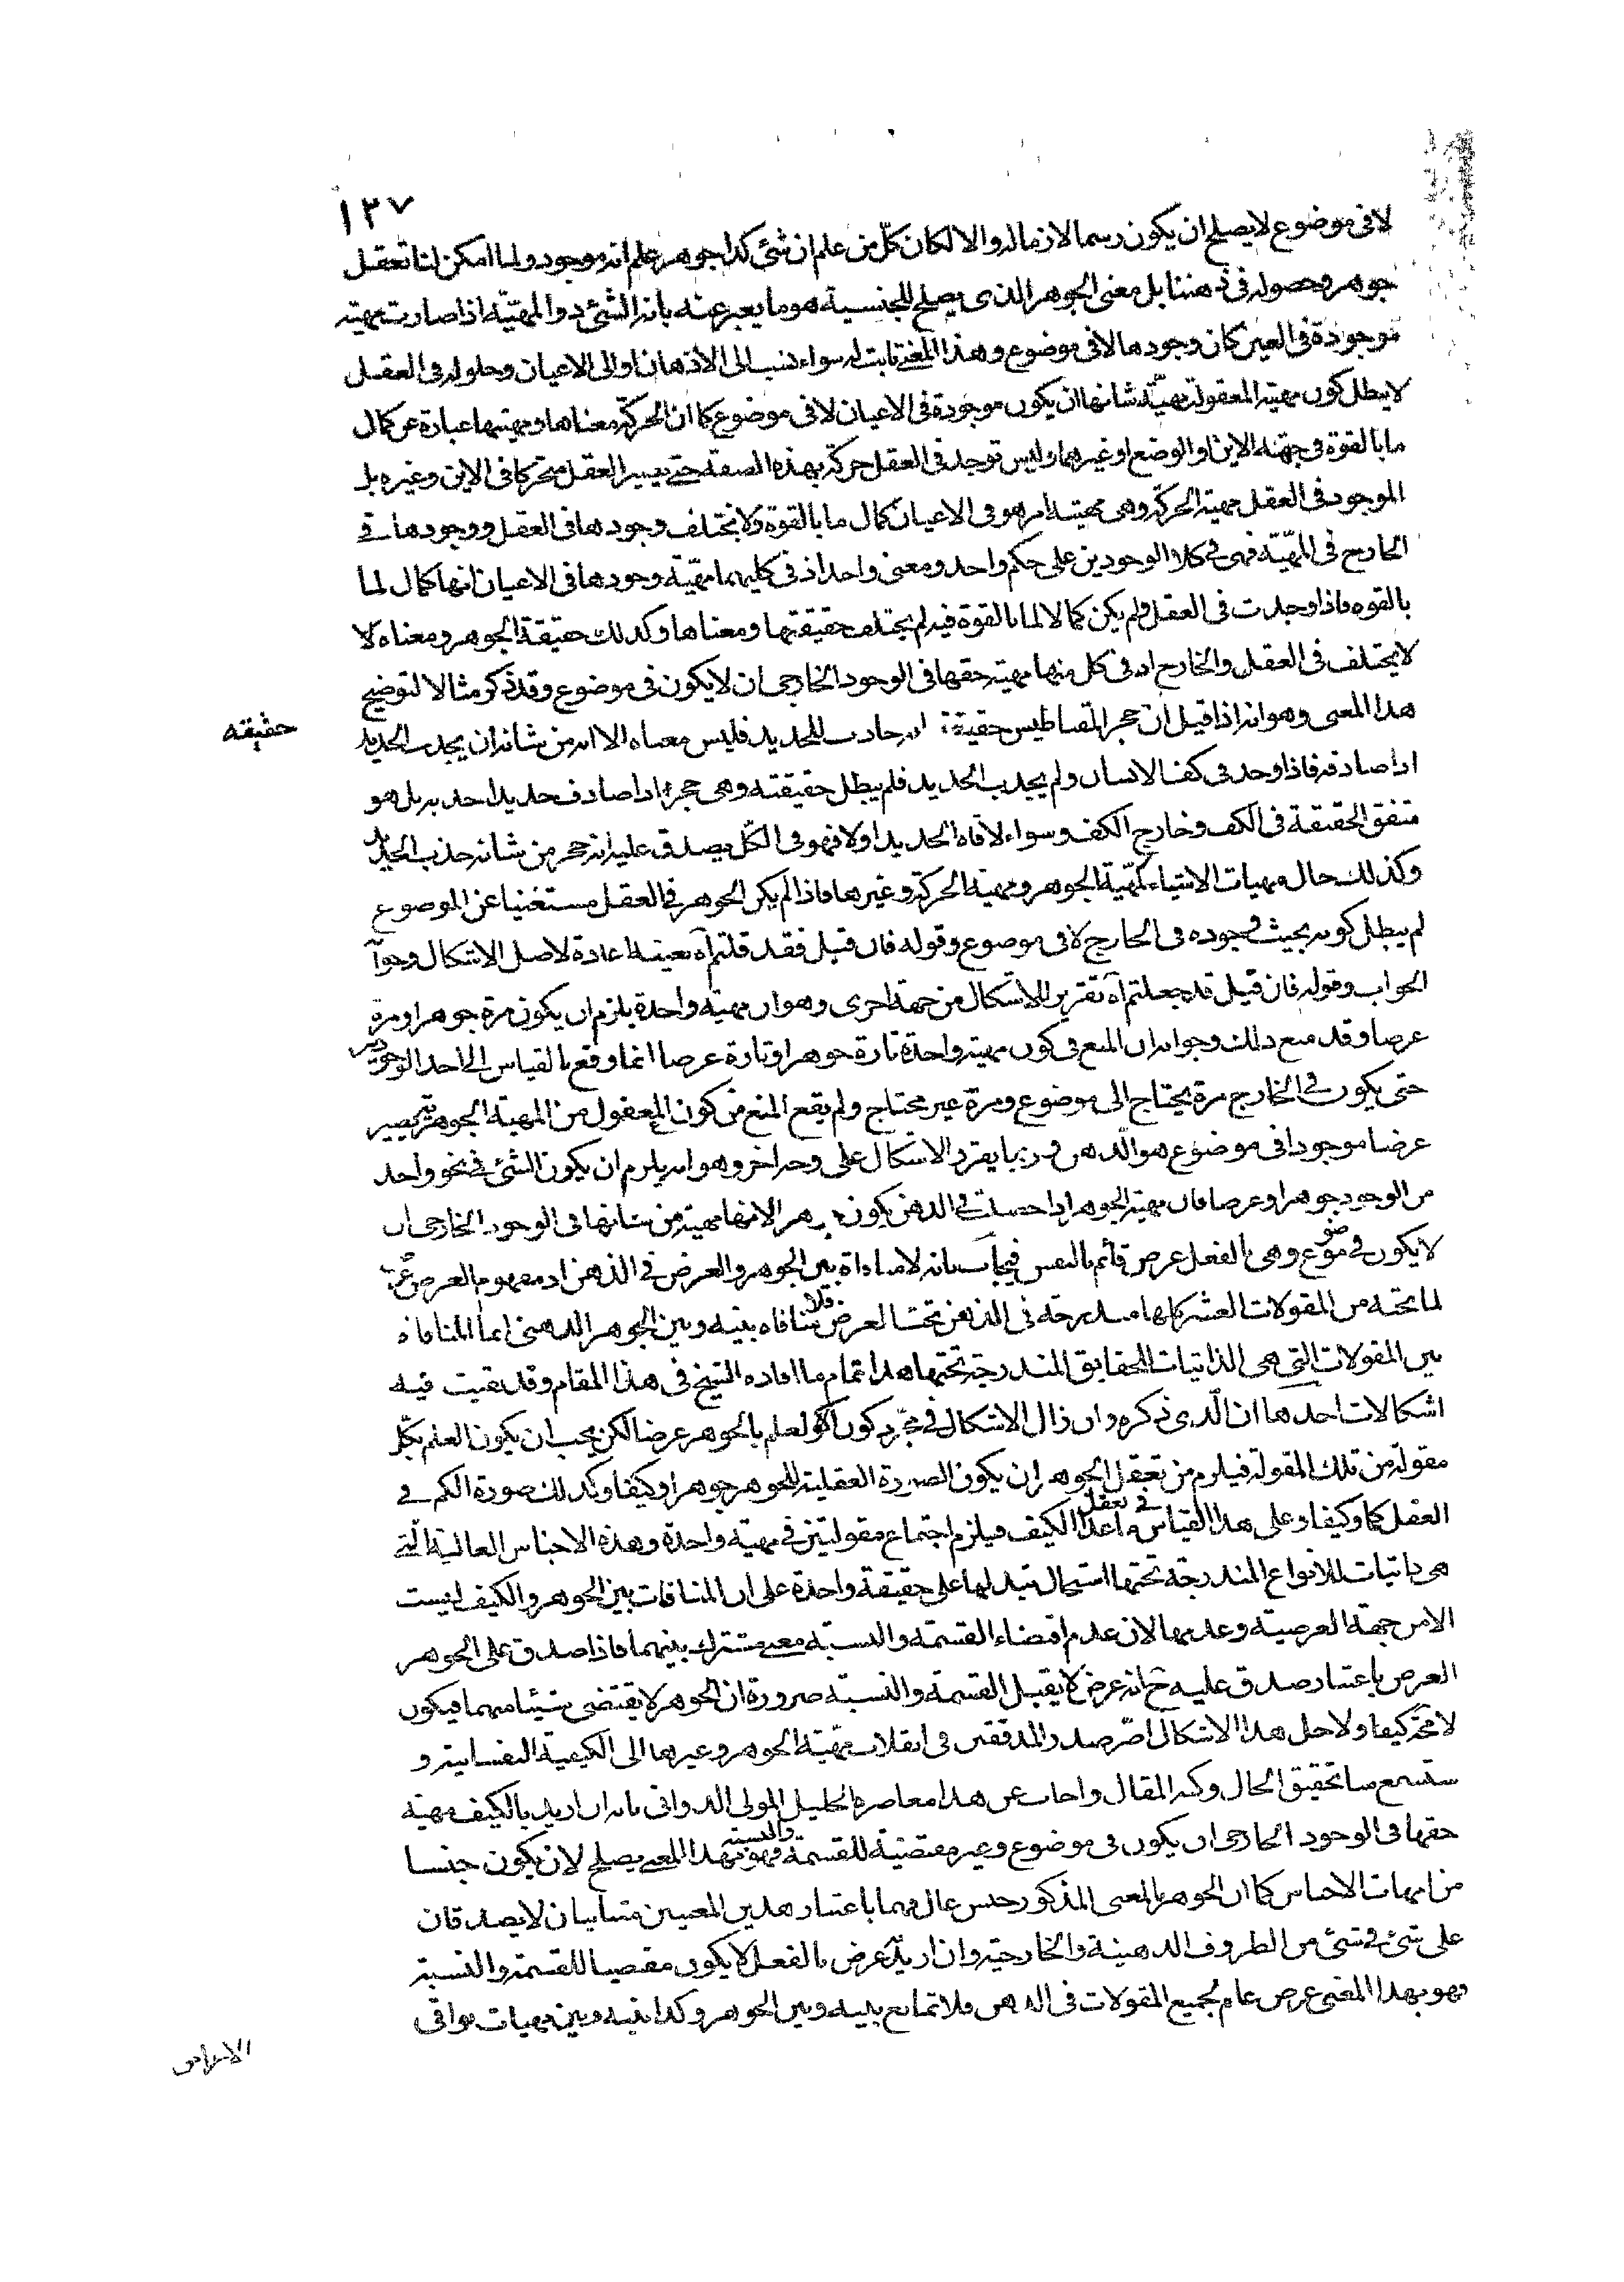 ١٢٧
لا فى موضوع لا يصلح ان يكون رسما لازما له والا لكان كلّ من علم ان شئ كذا جوهر علم انه موجود ولما امكن لنا تعقل
جوهر وحصوله فى ذهننا بل معنى الجوهر الذى يصلح للجنسية هو ما يعبر عنه بانه الشئ ذو المهيّة اذا صارت مهيته
موجودة فى العين كان وجودها لا فى موضوع وهذا المعنى ثابت له سواء نسب الى الاذهان او الى الاعيان وحلوله فى العقل
لا يبطل كون مهيته المعقولة مهيّة شانها ان يكون موجودة فى الاعيان لا فى موضوع كما ان الحركة معناها ومهيتها عبارة عن كمال
ما بالقوة فى جهته الاين او الوضع او غيرهما وليس توجد فى العقل حركة بهذه الصفة حتى يصير العقل متحركا فى الاين وغيره بل
الموجود فى العقل مهية الحركة وهى مهيته امر هو فى الاعيان كمال ما بالقوة ولا يختلف وجودها فى العقل ووجودها فى
الخارج فى المهيّة فهى فى كلا الوجودين على حكم واحد ومعنى واحد اذ فى كليهما مهيّة وجودها فى الاعيان انها كمال لما
بالقوه فاذا وجدت فى العقل ولم يكن كمالا لما بالقوة فيه لم يختلف حقيقتها ومعناها وكذلك حقيقة الجوهر ومعناه لا
لا يختلف فى العقل والخارج اذ فى كل منهما مهية حقها فى الوجود الخارجى ان لا يكون فى موضوع وقد ذكر مثالا لتوضيح
هذا المعنى وهو انه اذا قيل ان حجر المقناطيس حقيقة انه جاذب للحديد فليس معناه الا انه من شانه ان يجذب الحديد
حقيقته
اذا صادفه فاذا وجد فى كف الانسان ولم يجذب الحديد فلم يبطل حقيقته وهى حجر اذا صادف حديدا جذبه بل هو
متفق الحقيقة فى الكف وخارج الكف وسواء لاقاه الحديد او لا فهو فى الكلّ يصدق عليه انه حجر من شانه جذب الحديد
وكذلك حال مهيات الاشياء كمهيّة الجوهر ومهية الحركة وغيرها فاذا لم يكن الجوهر فى العقل مستغنيا عن الموضوع
لم يبطل كونه بحيث وجوده فى الخارج لا فى موضوع وقوله فان قيل فقد قلتم آه بعينه اعادة لاصل الاشكال وجوابه
الجواب وقوله فان قيل قد جعلتم آه تقرير للاشكال من جهة اخرى وهو ان مهيته واحدة يلزم ان يكون مرة جوهرا ومرة
عرضا وقد منع ذلك وجوابه ان المنع فى كون مهية واحدة تارة جوهرا وتارة عرضا انما وقع بالقياس الى احد الوجودين
حتى يكون فى الخارج مرة يحتاج الى موضوع ومرة غير محتاج ولم يقع المنع من كون المعقول من المهية الجوهرية يصير
عرضا موجودا فى موضوع هو الذهن وربما يقرر الاشكال على وجه اخر وهو انه يلزم ان يكون الشئ فى نحو واحد
من الوجود جوهرا وعرضا فان مهية الجوهر اذا حصلت فى الذهن يكون جوهر الانها مهية من شانها فى الوجود الخارجى ان
لا يكون فى موضوع وهى بالفعل عرض قائم بالنفس فيجاب بانه لا منافاة بين الجوهر والعرض فى الذهن اذ مفهوم العرض عرض
لما تحته من المقولات العشر كلها مندرجة فى الذهن تحت العرض فلا منافاه بينه وبين الجوهر الذهنى انما المنافاة
بين المقولات التى هى الذاتيات للحقايق المندرجة تحتها هذا تمام ما افاده الشيخ فى هذا المقام وقد بقيت فيه
اشكالات احدها ان الّذى ذكره وان زال الاشكال فى مجّرد كون العلم بالجوهر عرضا لكن يجب ان يكون العلم بكلّ
مقولة من تلك المقولة فيلزم من تعقل الجوهر ان يكون الصورة العقلية للجوهر جوهرا وكيفا وكذلك صورة الكم فى
العقل كما وكيفا وعلى هذا القياس فى تعقل ما عدا الكيف فيلزم اجتماع مقولتين فى مهية واحدة وهذه الاجناس العالية الّتى
هى ذاتيات للانواع المندرجة تحتها استحال تبدلها على حقيقة واحدة على ان المنافات بين الجوهر والكيف ليست
الا من جهة العرضية وعدمها لان عدم اقتضاء القسمة والنسبة معنى مشترك بينهما فاذا صدق على الجوهر
العرض باعتبار صدق عليه ح انه عرض لا يقبل القسمة والنسبة ضرورة ان الجوهر لا يقتضى شيئا منهما فيكون
لا محّة كيفا ولاجل هذا الاشكال اصّر صدر المدققين فى انقلاب مهيّة الجوهر وغيرها الى الكيفية النفسانية و
ستسمع منا تحقيق الحال وكنه المقال واجاب عن هذا معاصره الجليل المولى الدوانى بانه ان اريد بالكيف مهية
حقها فى الوجود الخارجى ان يكون فى موضوع وغير مقتضية للقسمة والنسبة فهو بهذا المعنى يصلح لان يكون جنسا
من امهات الاجناس كما ان الجوهر بالمعنى المذكور جنس عال فهما باعتبار هذين المعنيين متباينان لا يصدقان
على شئ فى شئ من الظروف الذهنية والخارجية وان اريد عرض بالفعل لا يكون مقتضيا للقسمة والنسبة
فهو بهذا المعنى عرض عام لجميع المقولات فى الذهن فلا تمانع بينه وبين الجوهر وكذا بينه وبين مهيات بواقى
الاعراض